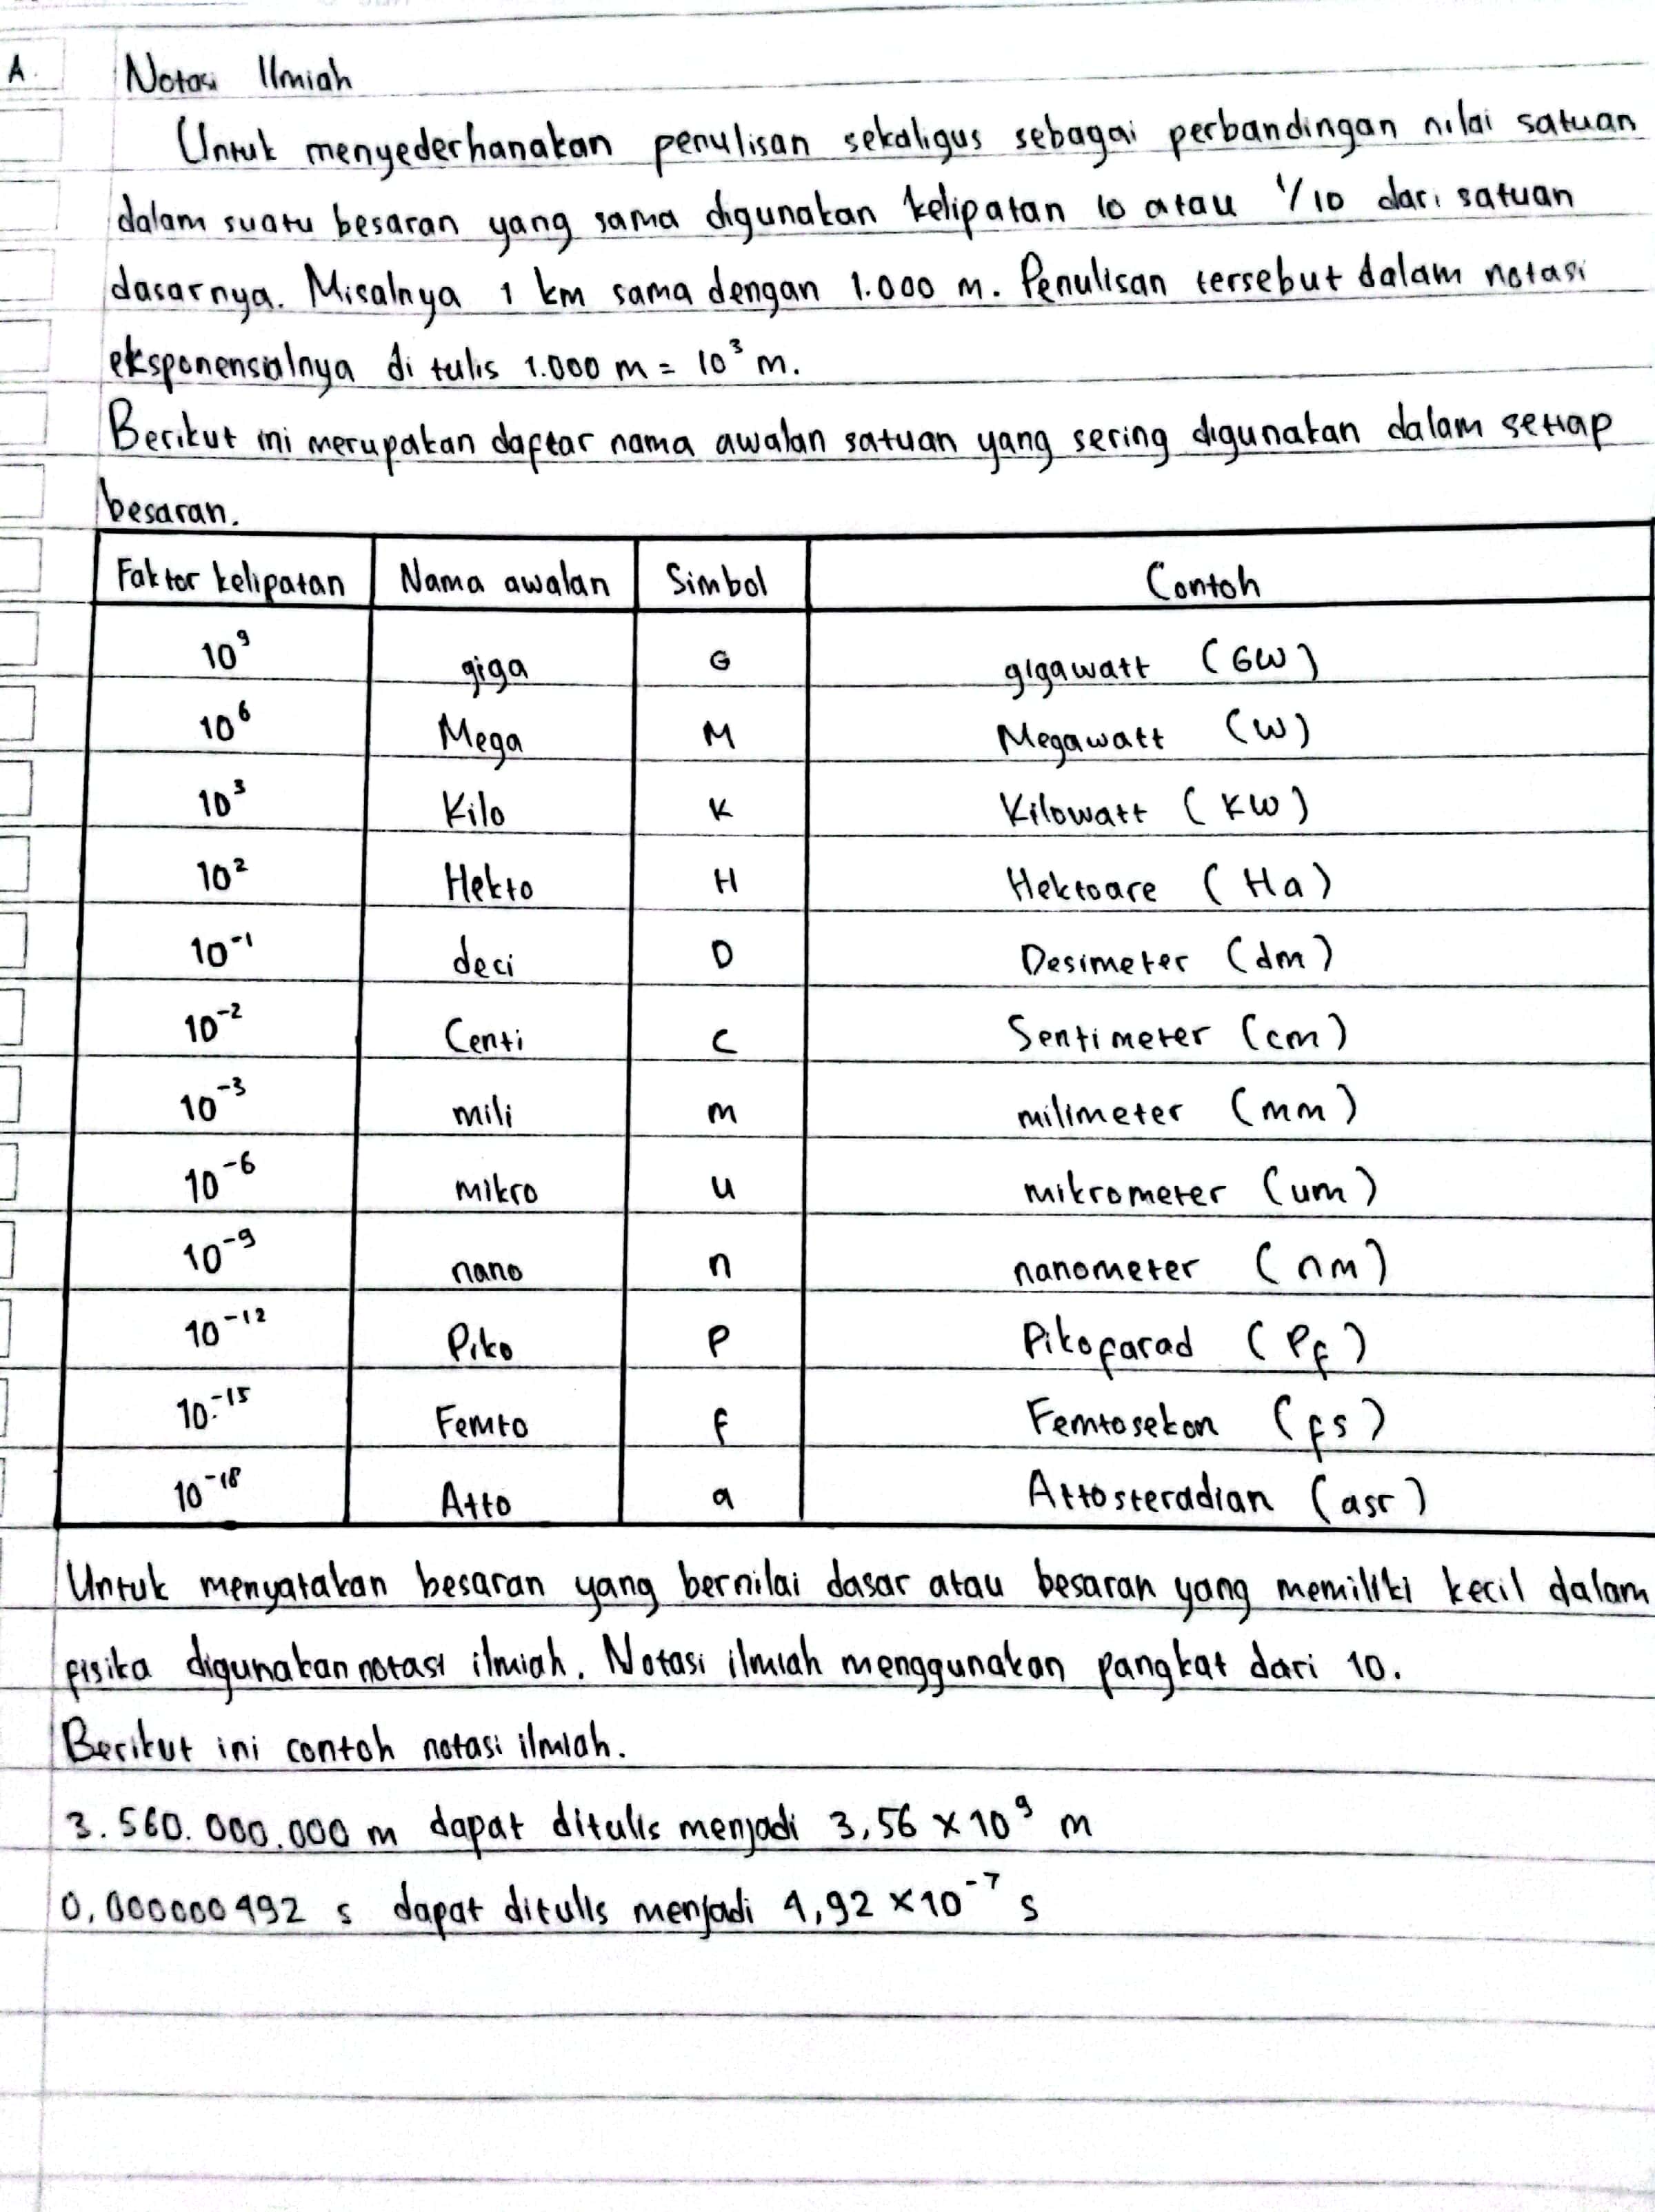 A. Notasi Ilmiah
Untuk menyederhanakan penulisan sekaligus sebagai perbandingan nilai satuan
dalam suatu besaran yang sama digunakan kelipatan 10 atau 1/10 dari satuan
dasarnya. Misalnya 1 km sama dengan 1.000 m. Penulisan tersebut dalam notasi
eksponensialnya di tulis 1.000 m = 10³ m.
Berikut ini merupakan daftar nama awalan satuan yang sering digunakan dalam setiap
besaran.
Faktor kelipatan Nama awalan Simbol Contoh
10⁹ giga G gigawatt (GW)
10⁶ Mega M Megawatt (W)
10³ Kilo K Kilowatt (KW)
10² Hekto H Hektoare (Ha)
10⁻¹ deci D Desimeter (dm)
10⁻² Centi C Sentimeter (cm)
10⁻³ mili m milimeter (mm)
10⁻⁶ mikro u mikrometer (um)
10⁻⁹ nano n nanometer (nm)
10⁻¹² Piko P Pikofarad (Pf)
10⁻¹⁵ Femto f Femtosekon (fs)
10⁻¹⁸ Atto a Attosteradian (asr)
Untuk menyatakan besaran yang bernilai dasar atau besaran yang memiliki kecil dalam
fisika digunakan notasi ilmiah. Notasi ilmiah menggunakan pangkat dari 10.
Berikut ini contoh notasi ilmiah.
3.560.000.000 m dapat ditulis menjadi 3,56 x 10⁹ m
0,000000492 s dapat ditulis menjadi 4,92 x 10⁻⁷ s